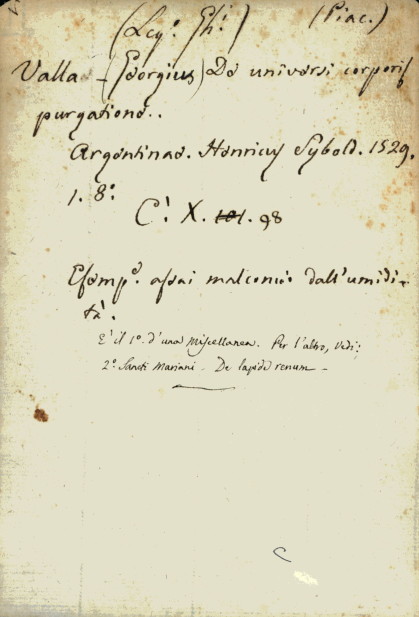 (Leg.º Gh.i) (Piac.)
Valla - (Georgius) De universi corporis
purgatione..
Argentinae. Henricus Sybold. 1529.
1. 8.º
C.! X. 98
Esemp.º assai malconcio dall'umidi-
tà.
E' il 1º. d'una Miscellanea. Per l'altro, vedi:
2º. Sancti Mariani. De lapide renum -
C